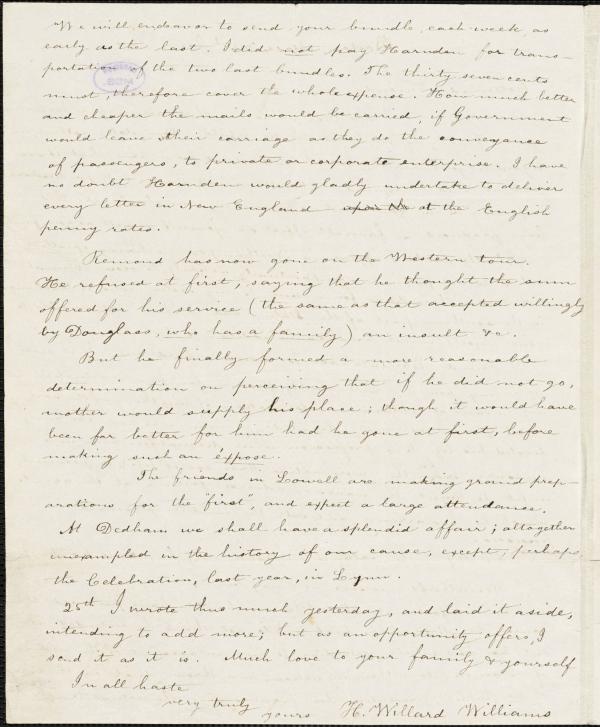 We will endeavor to send your bundle, each week, as
early as the last. I did not pay Harnden for trans-
portation of the two last bundles. The thirty seven cents
must, therefore cover the whole expense. How much better
and cheaper the mails would be carried, if Government
would leave their carriage as they do the conveyance
of passengers, to private or corporate enterprise. I have
no doubt Harnden would gladly undertake to deliver
every letter in New England upon the at the English
penny rates.
Remond has now gone on the Western tour.
He refused at first, saying that he thought the sum
offered for his service (the same as that accepted willingly
by Douglass, who has a family) an insult &c.
But he finally formed a more reasonable
determination on perceiving that if he did not go,
another would supply his place; though it would have
been far better for him had he gone at first, before
making such an éxpose.
The friends in Lowell are making grand prep-
arations for the "first", and expect a large attendance.
At Dedham we shall have a splendid affair; altogether
unexampled in the history of our cause, except, perhaps,
the Celebration, last year, in Lynn.
25th I wrote thus much yesterday, and laid it aside,
intending to add more; but as an opportunity offers, I
send it as it is. Much love to your family & yourself
In all haste
very truly
yours H. Willard Williams